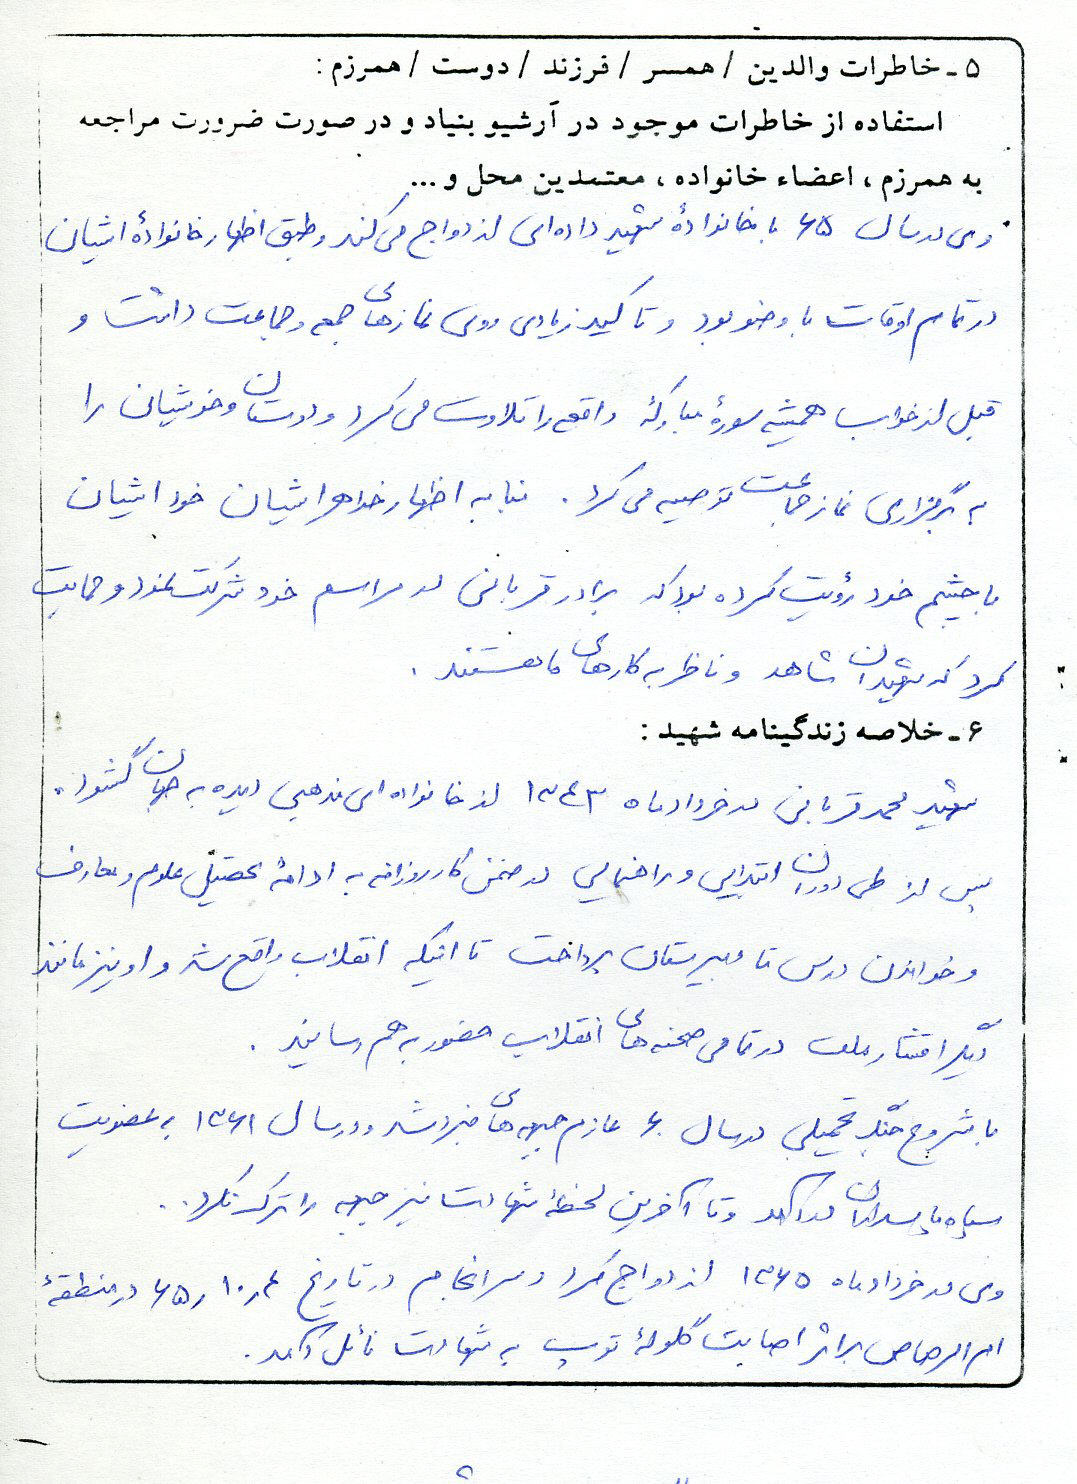 ۵ ـ خاطرات والدین / همسر / فرزند / دوست / همرزم :
استفاده از خاطرات موجود در آرشیو بنیاد و در صورت ضرورت مراجعه
به همرزم ، اعضاء خانواده ، معتمدین محل و ...
وی در سال ۶۵ با خانوادهٔ شهید داده‌ای ازدواج می‌کند و طبق اظهار خانوادهٔ ایشان
در تمام اوقات با وضو بود و تاکید زیادی روی نمازهای جمعه و جماعت داشت و
قبل از خواب همیشه سورهٔ مبارکهٔ واقعه را تلاوت می‌کرد و دوستان و خویشان را
به برگزاری نماز جماعت توصیه می‌کرد . بنا به اظهار خواهر ایشان خود ایشان
با چشم خود رؤیت کرده بود که برادر قربانی در مراسم خود شرکت نمود و
کرد که شهیدان شاهد و ناظر به کارهای ما هستند .
۶ ـ خلاصه زندگینامه شهید :
شهید محمد قربانی در خرداد ماه ۱۳۴۳ از خانواده‌ای مذهبی دیده به جهان گشود .
پس از طی دوران ابتدایی و راهنمایی در ضمن کار روزانه به ادامهٔ تحصیل علوم و معارف
و خواندن درس تا دبیرستان پرداخت تا اینکه انقلاب واقع شد و او نیز مانند
دیگر اقشار ملت در تمامی صحنه‌های انقلاب حضور به هم رسانید .
با شروع جنگ تحمیلی در سال ۶۰ عازم جبهه‌های نبرد شد و در سال ۱۳۶۱ به عضویت
سپاه پاسداران درآمد و تا آخرین لحظهٔ شهادت نیز جبهه را ترک نکرد .
وی در خرداد ماه ۱۳۶۵ ازدواج کرد و سرانجام در تاریخ ۶۵٫۱۰٫۴ در منطقهٔ
ام الرصاص بر اثر اصابت گلولهٔ توپ به شهادت نائل آمد .